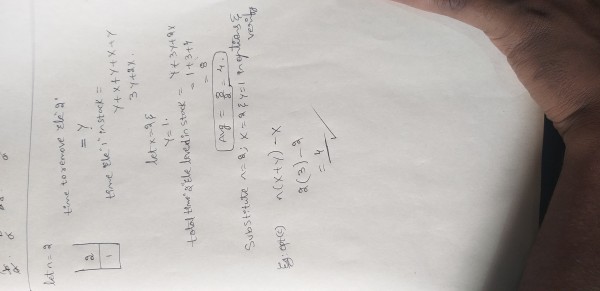 let n = 2
2
1
time to remove ele '2'
= y
time Ele '1' in stack =
y + x + y + x + y
3y + 2x.
let x = 2 &
y = 1.
total time 2 Ele lived in stack = y + 3y + 2x
= 1 + 3 + 4
= 8
Avg = 8/2 = 4.
Substitute n = 2; x = 2 & y = 1 in options &
verify
Eg: opt(c) n(x+y) - x
2(3) - 2
= 4